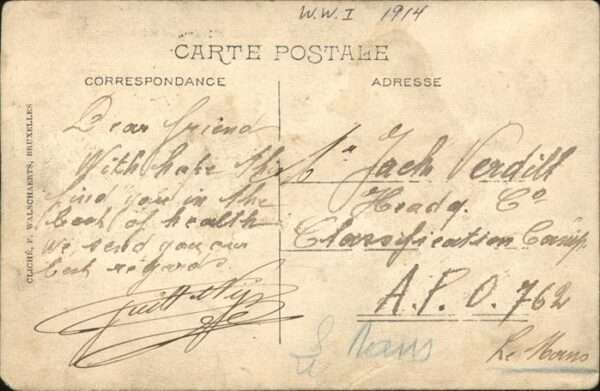 W.W.I 1914
CARTE POSTALE
CORRESPONDANCE
ADRESSE
CLICHÉ, F. WALSCHAERTS, BRUXELLES
Dear friend
With hope this
find you in the
best of health
We send you our
best regards
Mr Jack Verdilt
Headq. Co
Classification Camp.
A.P.O. 762
Le Mans
Le Mans